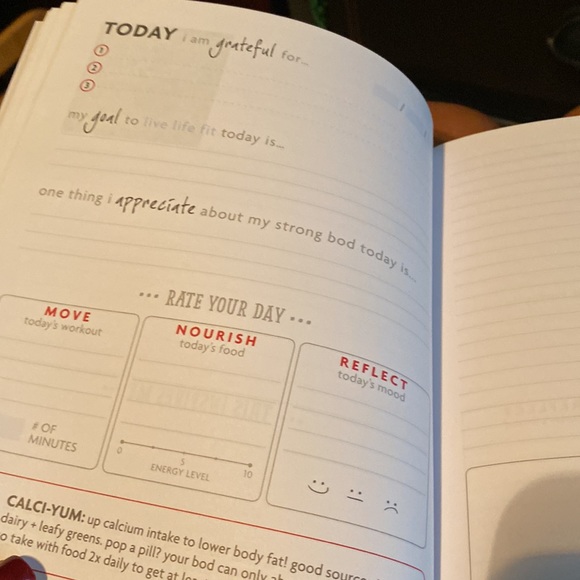 TODAY i am grateful for...
1
2
3
my goal to live life fit today is...
one thing i appreciate about my strong bod today is...
... RATE YOUR DAY ...
MOVE
today's workout
# OF
MINUTES
NOURISH
today's food
0 5 10
ENERGY LEVEL
REFLECT
today's mood
CALCI-YUM: up calcium intake to lower body fat! good
dairy + leafy greens. pop a pill? your body can only
to take with food 2x daily to get at